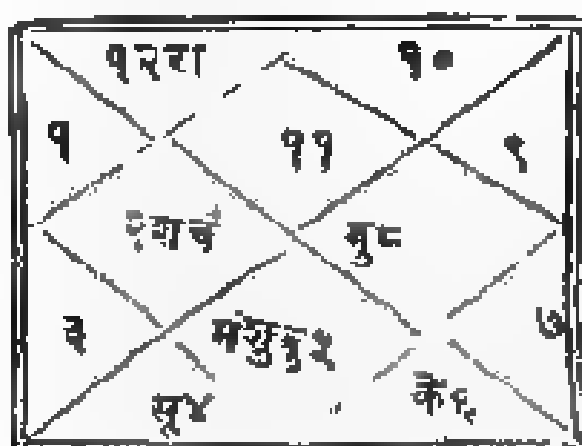 १२रा
१०
१
११
९
२शचं
गु८
३
मंशुबु५
७
सू४
के६